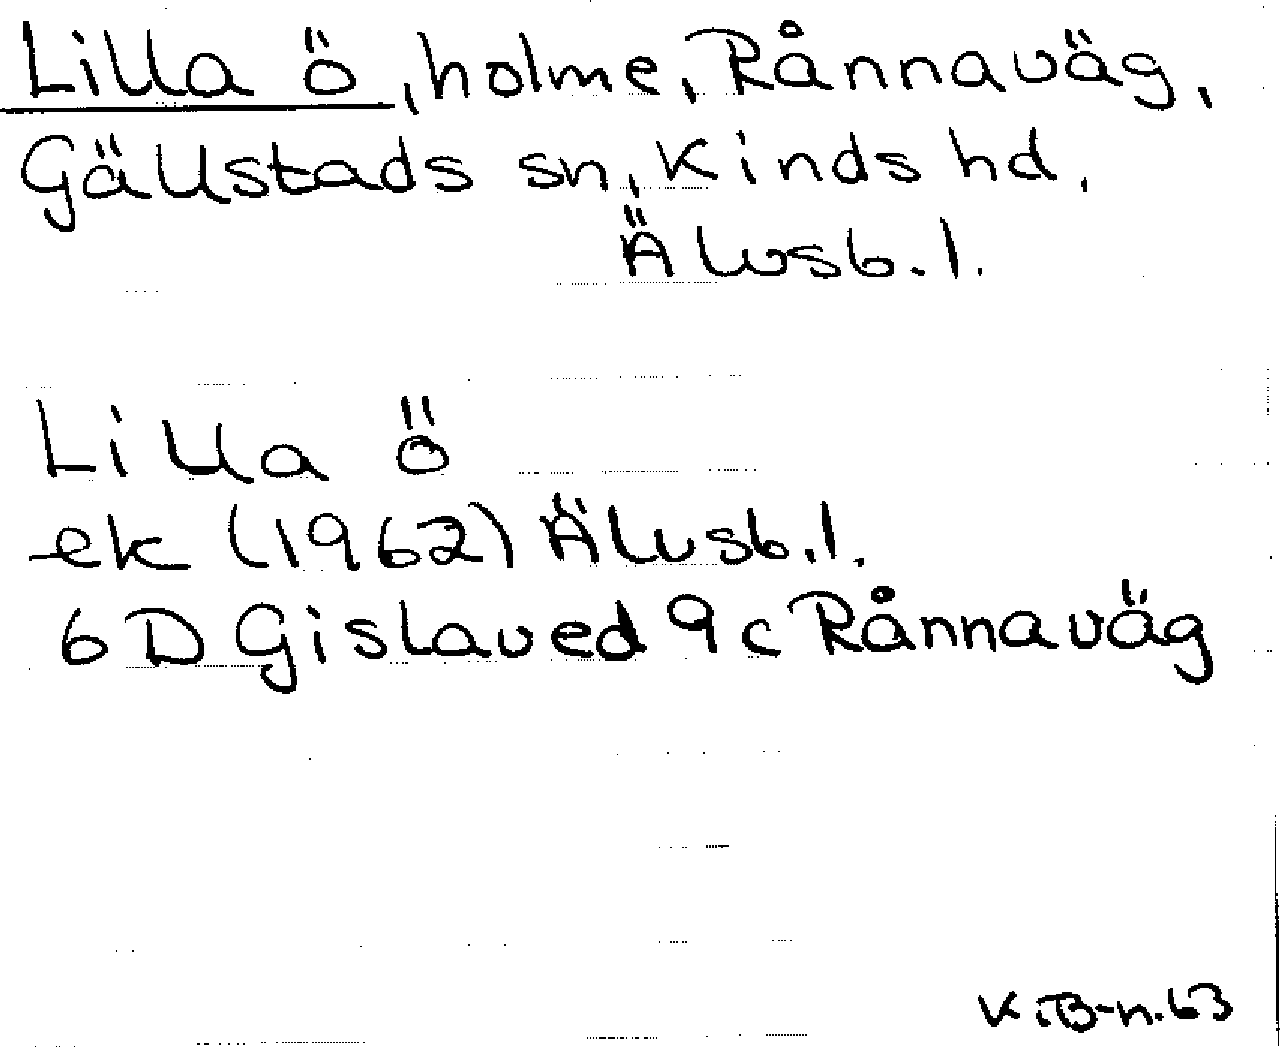 Lilla ö, holme, Rånnaväg,
Gällstads sn, Kinds hd,
Älvsb. l.
Lilla ö
ek (1962) Älvsb. l.
6D Gislaved 9c Rånnaväg
K.B-n.63